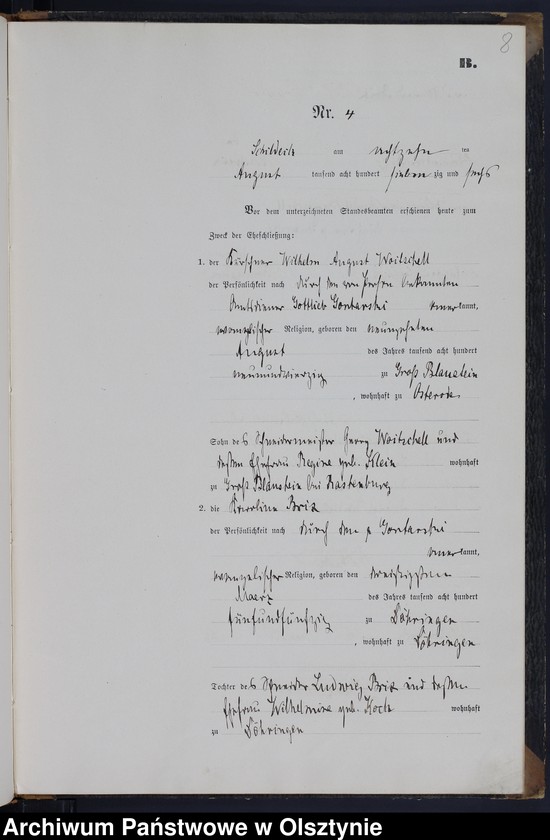 8
B.
Nr. 4
Schildeck am achtzehn ten
August tausend acht hundert sieben zig und sechs
Vor dem unterzeichneten Standesbeamten erschienen heute zum
Zweck der Eheschließung:
1. der Kürschner Wilhelm August Woitschell
der Persönlichkeit nach durch den von Person bekannten
Amtsdiener Gottlieb Gontarski anerkannt,
evangelischer Religion, geboren den neunzehnten
August des Jahres tausend acht hundert
neunundvierzig zu Groß Blaustein
, wohnhaft zu Osterode
Sohn des Schneidermeister Georg Woitschell und
dessen Ehefrau Regine geb. Klein wohnhaft
zu Groß Blaustein bei Rastenburg
2. die Karoline Brix
der Persönlichkeit nach durch den p Gontarski
anerkannt,
evangelischer Religion, geboren den dreißigsten
Maerz des Jahres tausend acht hundert
fünfundfünfzig zu Döhringen
, wohnhaft zu Döhringen
Tochter des Schneider Ludwig Brix und dessen
Ehefrau Wilhelmine geb. Koch wohnhaft
zu Döhringen
Archiwum Państwowe w Olsztynie